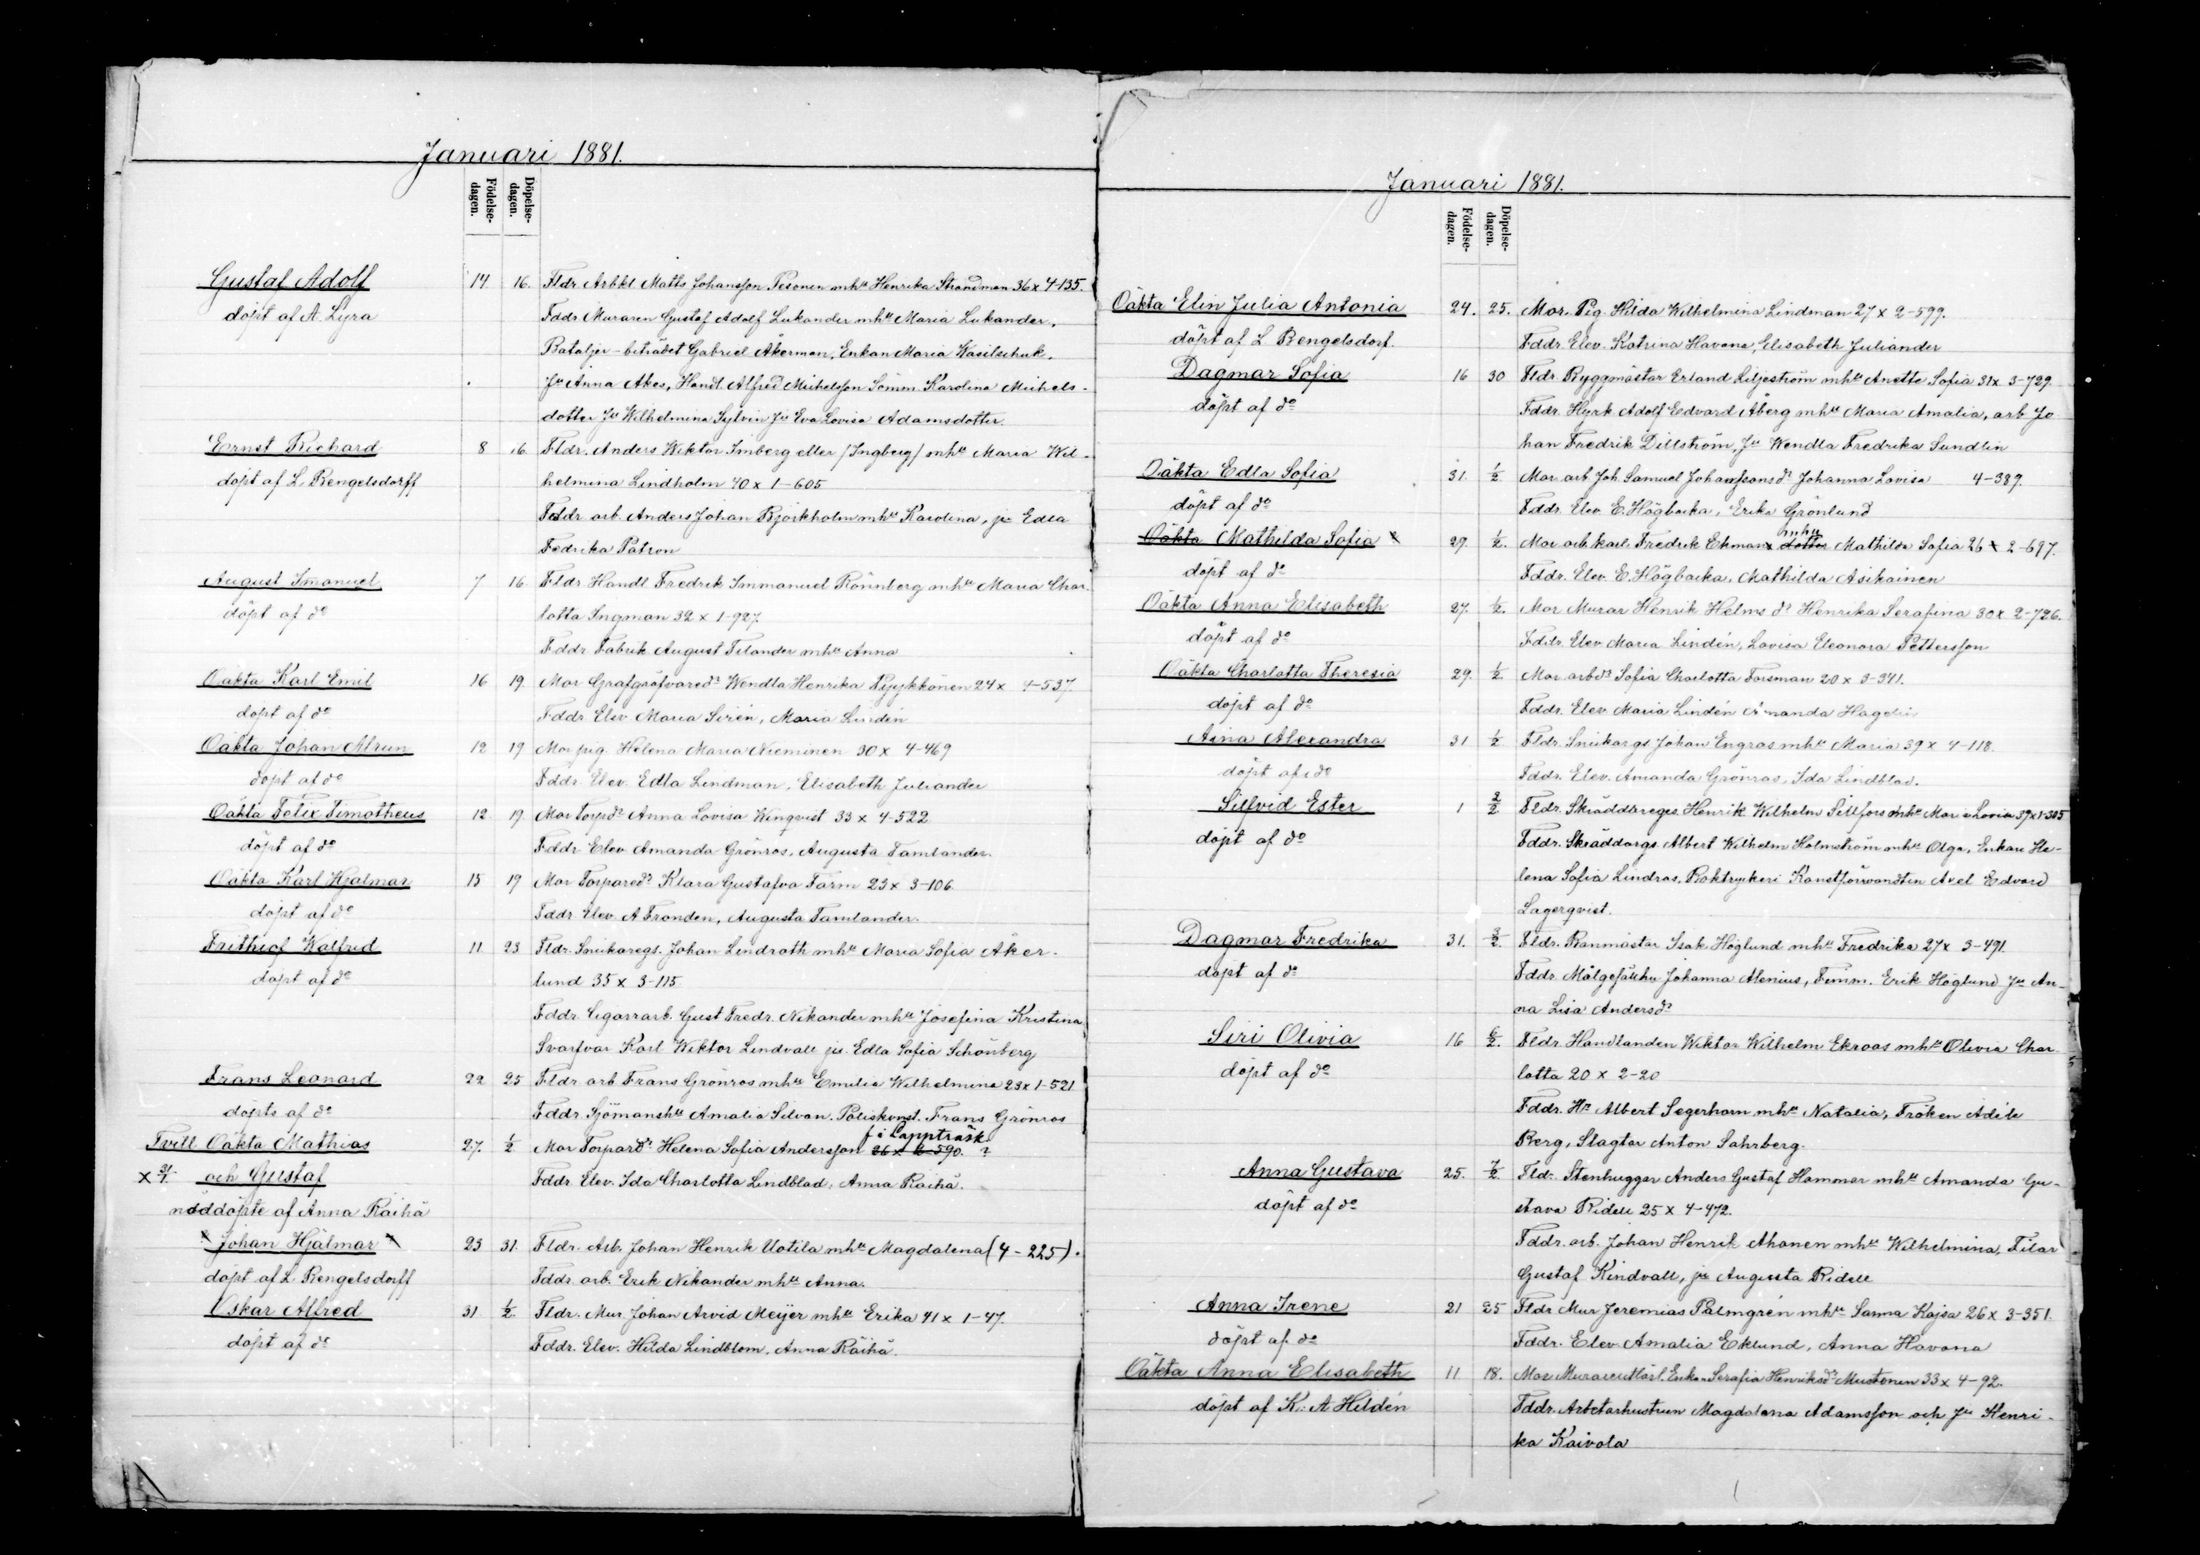 Januari 1881.
Födelse-dagen. Döpelse-dagen.
Gustaf Adolf 14 16. Fldr Arbkl Matts Johansson Pesonen mhu Henrika Strandman 36 x 4-135.
döpt af A. Lyra Fddr Muraren Gustaf Adolf Lukander mhu Maria Lukander,
Bataljer-beträbet Gabriel Åkerman, Enkan Maria Wasilschuk,
Ju Anna Akes, Handl. Alfred Michelsson Sömm. Karolina Michels-
dotter Ju Wilhelmina Sylvin Ju Eva Lovisa Adamsdotter.
Ernst Richard 8 16. Fldr. Anders Wiktor Imberg eller /Ingberg/ mhu Maria Wil-
döpt af L. Rengelsdorff helmina Lindholm 40 x 1-605
Fddr arb. Anders Johan Björkholm mhu Karolina, ju Edla
Fedrika Patron
August Imanuel 7 16. Fldr. Handl Fredrik Immanuel Rönnberg mhu Maria Char
döpt af do lotta Ingman 32 x 1-927.
Fddr Fabrik August Filander mhu Anna
Oäkta Karl Emil 16 19. Mor Grafgräfvaredr Wendla Henrika Pyykkönen 24 x 4-537.
döpt af do Fddr Elev. Maria Sirén, Maria Lindén
Oäkta Johan Alrun 12 19 Mor pig. Helena Maria Nieminen 30 x 4-469
döpt af do Fddr Elev. Edla Lindman, Elisabeth Juliander
Oäkta Felix Timotheus 12 19 Mor Torpdr Anna Lovisa Winqvist 33 x 4-522
döpt af do Fddr Elev Amanda Grönros, Augusta Tamlander.
Oäkta Karl Hjalmar 15 19 Mor Torparedr Klara Gustafva Färm 23 x 3-106
döpt af do Fddr Elev. A Fronden, Augusta Tamlander.
Frithiof Walfrid 11 23 Fldr. Snickaregs. Johan Lindroth mhu Maria Sofia Åker-
döpt af do lund 35 x 3-115
Fddr. Cigarrarb. Gust Fredr. Nikander mhu Josefina Kristina
Svarfvar Karl Wiktor Lindvall ju. Edla Sofia Schönberg
Frans Leonard 22 25 Fldr arb. Frans Grönros mhu Emilia Wilhelmina 23 x 1-521
döpts af do Fddr. Sjömanshu Amalia Silvan. Poliskonst. Frans Grönros
f i Lappträsk
Tvill Oäkta Mathias 27. 1/2 Mor Torpardr Helena Sofia Andersson 26 x 6-590. ?
x 31/1 och Gustaf Fddr Elev. Ida Charlotta Lindblad, Anna Räihä.
nöddöpte af Anna Räihä
x Johan Hjalmar x 23 31. Fldr. Arb. Johan Henrik Uotila mhu Magdalena (4-225).
döpt af L Rengelsdorff Fddr arb. Erik Nikander mhu Anna.
Oskar Alfred 31 1/2. Fldr. Mur. Johan Arvid Meijer mhu Erika 41 x 1-47.
döpt af do Fddr. Elev. Hilda Lindblom, Anna Räihä.
Januari 1881.
Födelse-dagen. Döpelse-dagen.
Oäkta Elin Julia Antonia 24. 25. Mor. Pig. Hilda Wilhelmina Lindman 27 x 2-599.
döpt af L Rengelsdorf Fddr. Elev. Katrina Havana, Elisabeth Juliander
Dagmar Sofia 16 30 Fldr. Byggmästar Erland Liljeström mhu Anette Sofia 31 x 3-729.
döpt af do Fddr. Hyrk Adolf Edvard Åberg mhu Maria Amalia, arb Jo
han Fredrik Dillström, Ju Wendla Fredrika Sundlin
Oäkta Edla Sofia 31. 1/2 Mor. arb. Joh. Samuel Johanssons dr Johanna Lovisa 4-389.
döpt af do Fddr. Elev E. Högbacka, Erika Grönlund
mhu
Oäkta Mathilda Sofia x 29. 1/2. Mor arb. karl. Fredrik Ekmans dotter Mathilda Sofia 26 x 2-697.
döpt af do Fddr. Elev. E. Högbacka, Mathilda Asikainen
Oäkta Anna Elisabeth 27. 1/2. Mor Murar Henrik Helms dr Henrika Serafina 30 x 2-726.
döpt af do Fddr. Elev Maria Lindén, Lovisa Eleonora Pettersson
Oäkta Charlotta Theresia 29. 1/2. Mor arbdr Sofia Charlotta Forsman 20 x 3-371.
döpt af do Fddr. Elev Maria Lindén Amanda Hagelin
Aina Alexandra 31 1/2 Fldr. Snickargs Johan Engros mhu Maria 39 x 4-118.
döpt af do Fddr. Elev. Amanda Grönros, Ida Lindblad.
Silfvid Ester 1 2/2 Fldr. Skräddaregs. Henrik Wilhelm Sillfors mhu Maria Lovisa 39 x 1-305
döpt af do Fddr. Skräddargs. Albert Wilhelm Holmström mhu Olga, Enkan He-
lena Sofia Lindros, Boktryckeri Konstförvandten Axel Edvard
Lagerqvist.
Dagmar Fredrika 31. 3/2. Fldr. Banmästar Isak Höglund mhu Fredrika 27 x 3-491.
döpt af do Fddr. Johanna Alenius, Timm. Erik Höglund Ju An-
na Lisa Andersdr
Siri Olivia 16 6/2. Fldr. Handlanden Wiktor Wilhelm Ekroos mhu Olivia Char
döpt af do lotta 20 x 2-20
Fddr. Hr Albert Segerhorn mhu Natalia, Fröken Adéle
Berg, Slagtar Anton Sahrberg.
Anna Gustava 25. 7/2. Fldr. Stenhuggar Anders Gustaf Hammar mhu Amanda Gu-
döpt af do stava Ridell 25 x 4-472.
Fddr. arb. Johan Henrik Ahonen mhu Wilhelmina, Filar
Gustaf Kindvall, ju Augusta Ridell
Anna Irene 21 25 Fldr Mur Jeremias Palmgrén mhu Sanna Kajsa 26 x 3-351.
döpt af do Fddr. Elev. Amalia Eklund, Anna Havana
Oäkta Anna Elisabeth 11 18. Mor Enkan Serafia Henriksdr Mustonen 33 x 4-92.
döpt af K. A Hildén Fddr. Arbetarhustrun Magdalena Adamsson och Ju Henri-
ka Kaivola